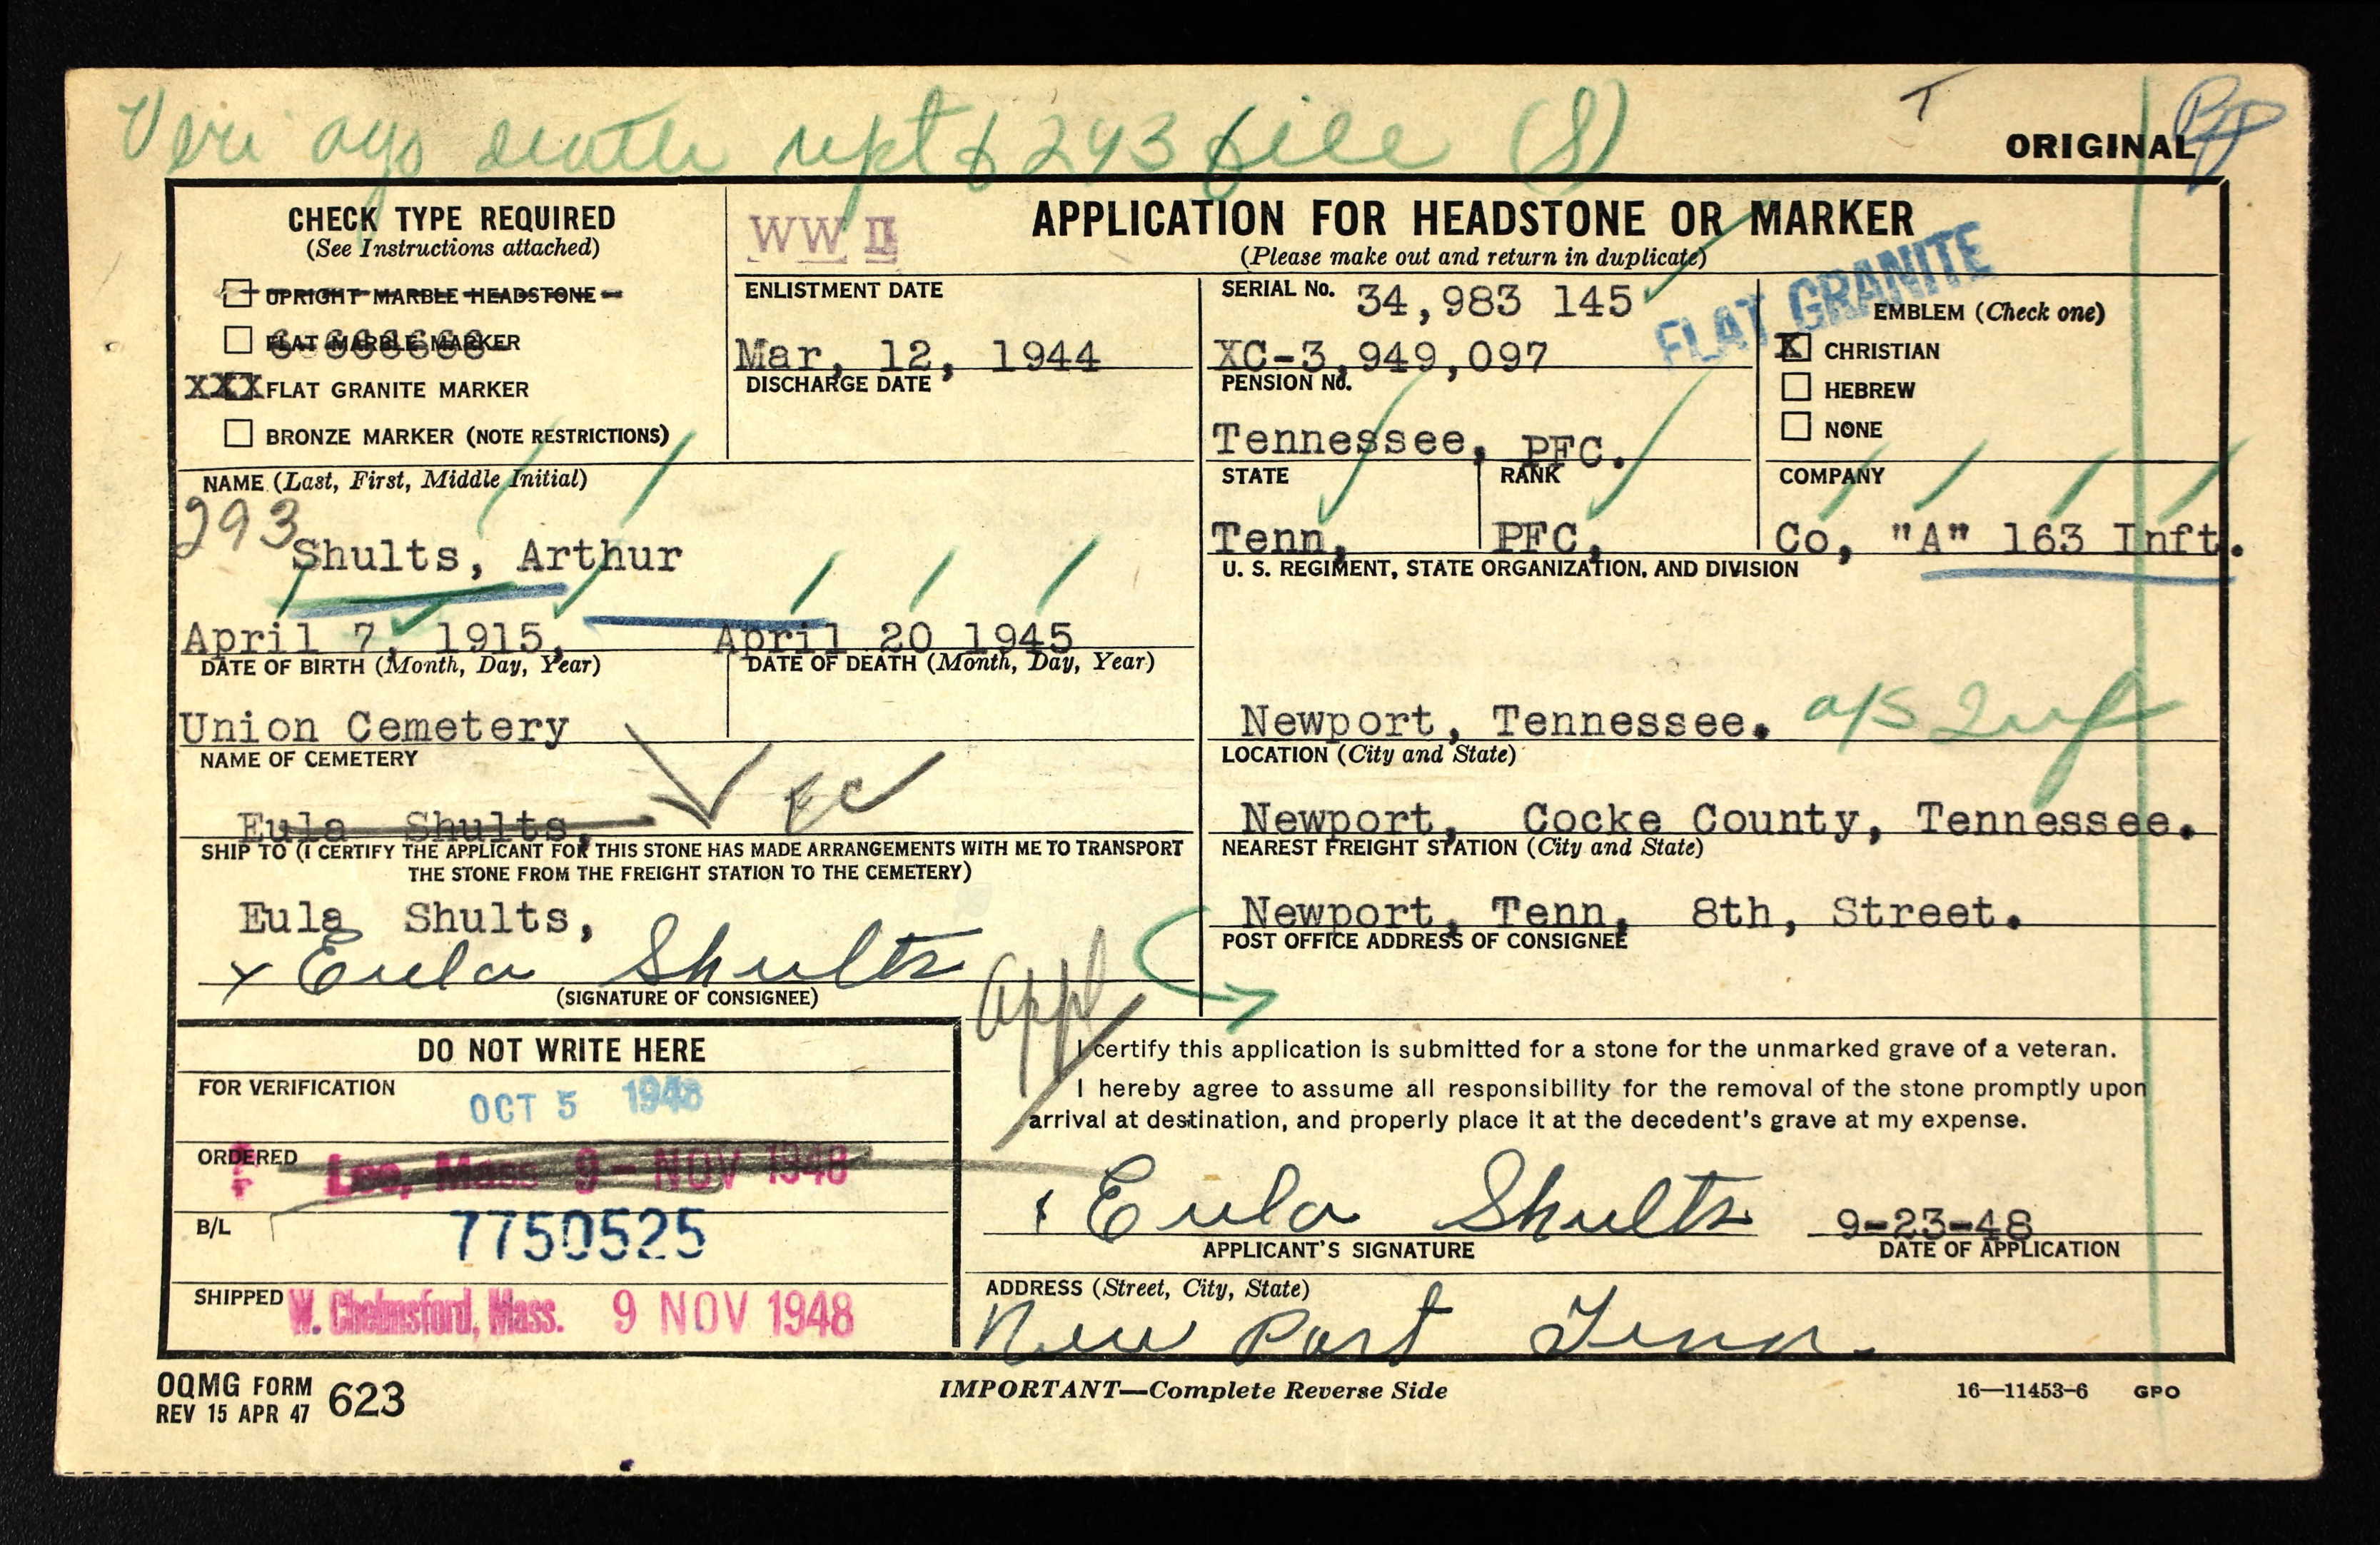 Veri ago death rept & 293 file (S)
T
ORIGINAL
CHECK TYPE REQUIRED
(See Instructions attached)
UPRIGHT MARBLE HEADSTONE
FLAT MARBLE MARKER
XXX FLAT GRANITE MARKER
BRONZE MARKER (NOTE RESTRICTIONS)
WW II
APPLICATION FOR HEADSTONE OR MARKER
(Please make out and return in duplicate)
ENLISTMENT DATE
Mar, 12, 1944
DISCHARGE DATE
SERIAL No. 34,983 145
XC-3,949,097
PENSION No.
FLAT GRANITE
EMBLEM (Check one)
X CHRISTIAN
HEBREW
NONE
Tennessee, PFC.
STATE RANK COMPANY
Tenn, PFC, Co, "A" 163 Inft.
U. S. REGIMENT, STATE ORGANIZATION, AND DIVISION
NAME (Last, First, Middle Initial)
293
Shults, Arthur
April 7, 1915, April 20 1945
DATE OF BIRTH (Month, Day, Year) DATE OF DEATH (Month, Day, Year)
Union Cemetery
NAME OF CEMETERY
Newport, Tennessee. a/s Inf
LOCATION (City and State)
Eula Shults,
SHIP TO (I CERTIFY THE APPLICANT FOR THIS STONE HAS MADE ARRANGEMENTS WITH ME TO TRANSPORT
THE STONE FROM THE FREIGHT STATION TO THE CEMETERY)
Newport, Cocke County, Tennessee.
NEAREST FREIGHT STATION (City and State)
Eula Shults,
x Eula Shults
(SIGNATURE OF CONSIGNEE)
Newport, Tenn, 8th, Street.
POST OFFICE ADDRESS OF CONSIGNEE
appl
DO NOT WRITE HERE
FOR VERIFICATION OCT 5 1948
ORDERED Lee, Mass 9 - NOV 1948
B/L 7750525
SHIPPED W. Chelmsford, Mass. 9 NOV 1948
I certify this application is submitted for a stone for the unmarked grave of a veteran.
I hereby agree to assume all responsibility for the removal of the stone promptly upon
arrival at destination, and properly place it at the decedent's grave at my expense.
Eula Shults 9-23-48
APPLICANT'S SIGNATURE DATE OF APPLICATION
ADDRESS (Street, City, State)
New Port Tenn.
OQMG FORM 623
REV 15 APR 47
IMPORTANT—Complete Reverse Side
16—11453-6 GPO